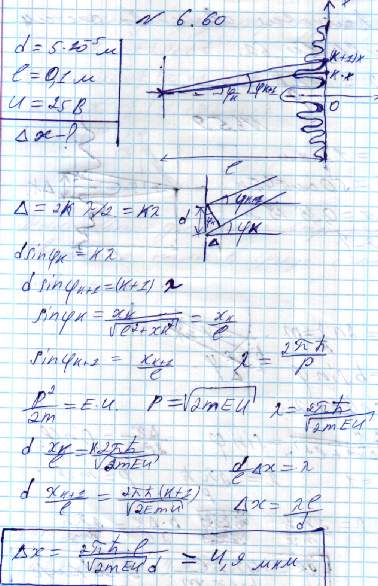 N 6.60
d = 5·10⁻⁵ м
l = 0,1 м
U = 25 В
Δx - ?
(k+1)x
k·x
0
φk
φk+1
l
Δ = 2k λ/2 = kλ
d
φk+1
φk
Δ
d sinφk = kλ
d sinφk+1 = (k+1) λ
sinφk = xk/√(l²+xk²) = xk/l
sinφk+1 = xk+1/l λ = 2πħ/p
p²/2m = E·U. P = √2mEU λ = 2πħ/√2mEU
d xk/l = k2πħ/√2mEU d/l Δx = λ
d xk+1/l = 2πħ(k+1)/√2EmU Δx = λl/d
Δx = 2πħ l/√2mEU d = 4,9 мкм